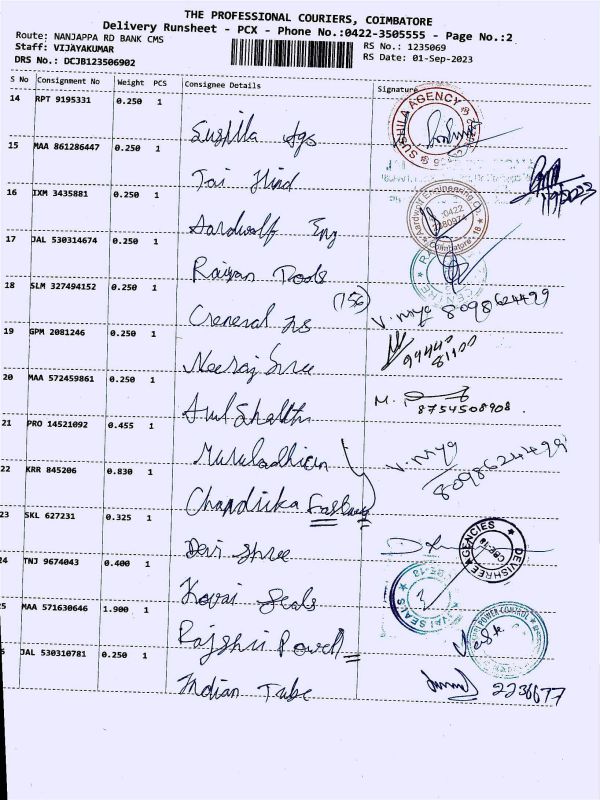 THE PROFESSIONAL COURIERS, COIMBATORE
Delivery Runsheet - PCX - Phone No.:0422-3505555 - Page No.:2
Route: NANJAPPA RD BANK CMS
RS No.: 1235069
Staff: VIJAYAKUMAR
RS Date: 01-Sep-2023
DRS No.: DCJB123506902
S No Consignment No Weight PCS Consignee Details Signature
14 RPT 9195331 0.250 1
Sushila Ags
SUSHILA AGENCY
15 MAA 861286447 0.250 1
Jai Hind
1/9/2023
16 IXM 3435881 0.250 1
Aardwolf Eng
Aardwolf Engineering Co.
Coimbatore - 18
17 JAL 530314674 0.250 1
Raiyan Tools
18 SLM 327494152 0.250 1
(156)
General Ins
8098624499
19 GPM 2081246 0.250 1
Neeraj Sree
94440
81100
20 MAA 572459861 0.250 1
Arul Shakthi
M.
8754508908
21 PRO 14521092 0.455 1
Muruladhien
8098624499
22 KRR 845206 0.830 1
Chandrika
23 SKL 627231 0.325 1
Devi Shree
DEVISHREE AGENCIES
CBE-18
24 TNJ 9674043 0.400 1
Kovai Seals
SEALS
25 MAA 571630646 1.900 1
Rajshri Powell
POWER CONTROL
JAL 530310781 0.250 1
Indian Tube
2236677